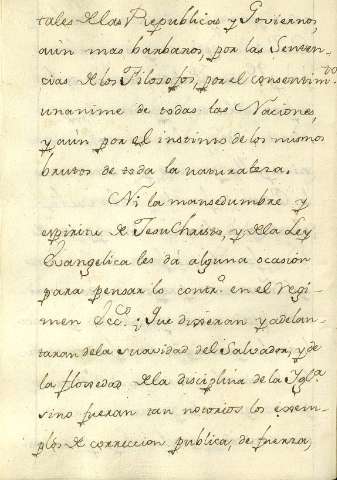 tales de las Republicas y Goviernos,
aún mas barbaros, por las Senten-
cias de los Filosofos, por el consentim.to
unanime de todas las Naciones,
y aún por el instinto de los mismos
brutos de toda la naturaleza.
Ni la mansedumbre y
espiritu de Jesu Christo, y de la Ley
Evangelica les dá alguna ocasión
para pensar lo contr.o en el regi-
men Ecc.o; Que dixeran y adelan-
taran de la suavidad del Salvador, y de
la floxedad de la disciplina de la Igl.a
sino fueran tan notorios los exem-
plos de correccion publica, de fuerza,